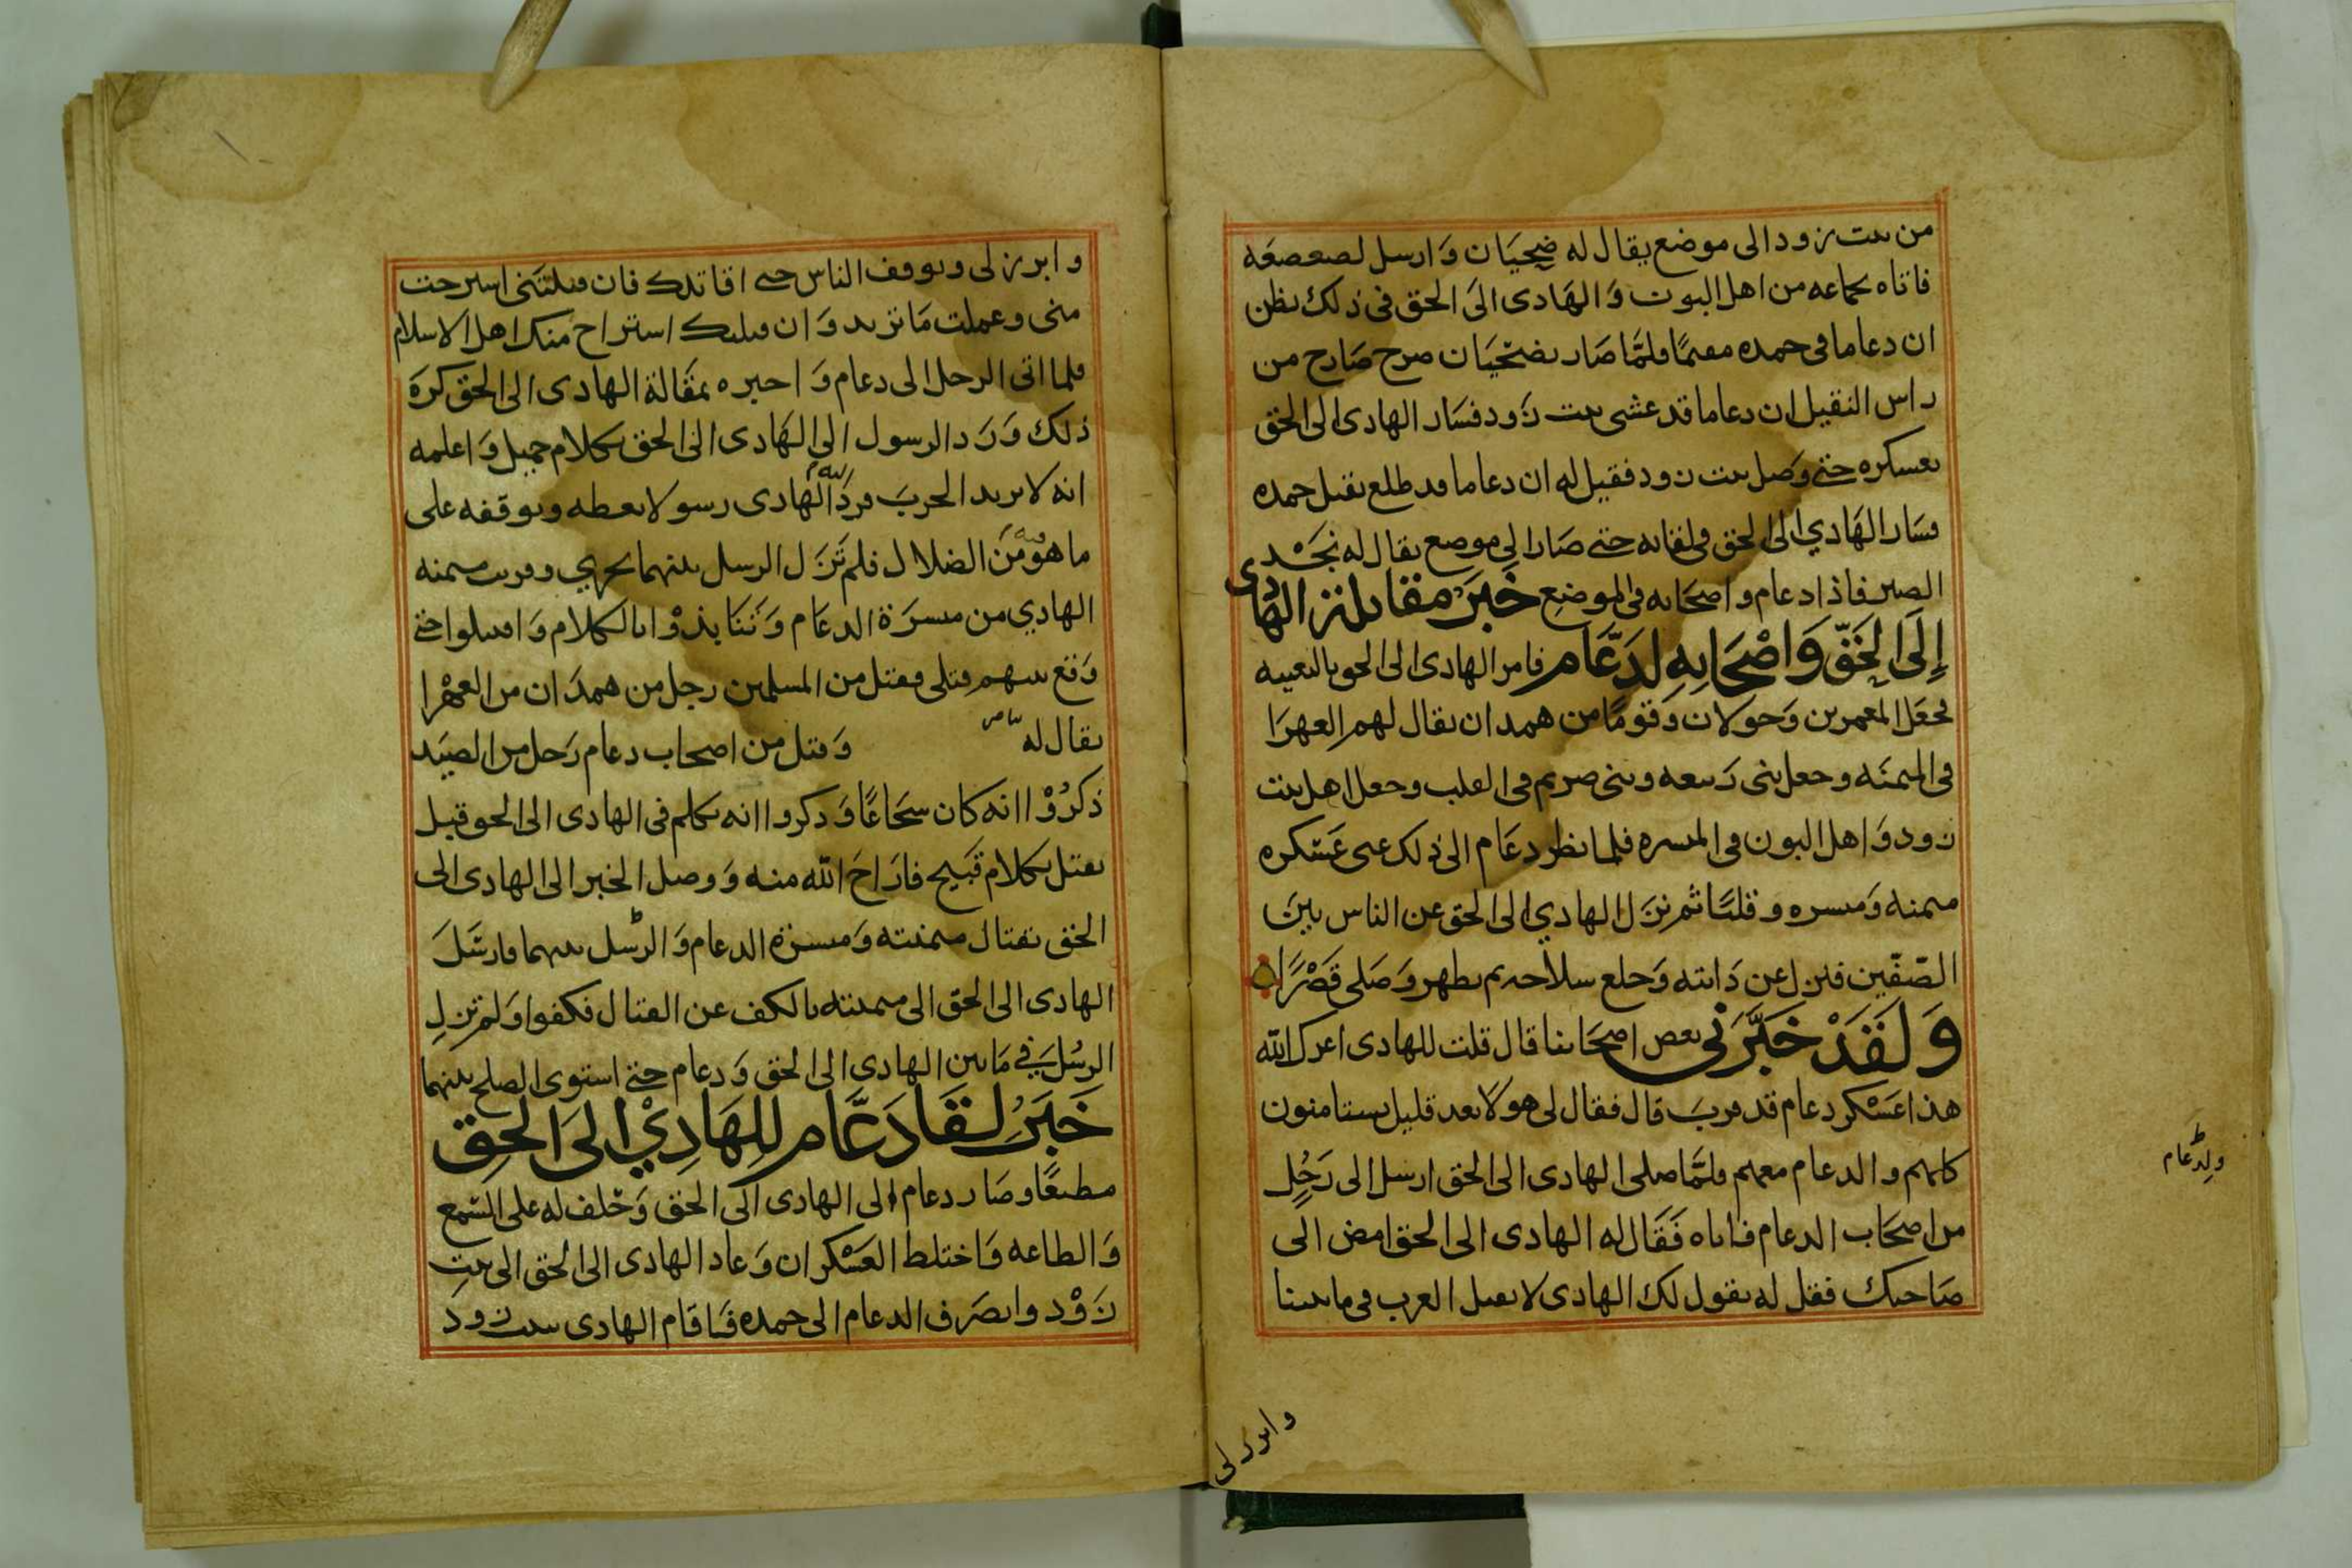 من بيت زود الى موضع يقال له ضحيان وارسل لصعصعه
فاتاه بجماعه من اهل البون والهادى الى الحق فى ذلك يظن
ان دعاما فى حمده مقيما فلما صار بضحيان صرح صارح من
راس النقيل ان دعاما قد عشى بيت زود فسار الهادى الى الحق
بعسكره حتى وصل بيت زود فقيل له ان دعاما قد طلع نقيل حمده
فسار الهادي الى الحق فى لقائه حتى صار الى موضع يقال له نجد
الصير فاذا دعام واصحابه فى الموضع خبر مقاتلة الهادى
إلى الحق واصحابه لدعام فامر الهادى الى الحق بالتعبيه
فجعل المعمرين وخولان وقوما من همدان يقال لهم العهرا
فى الميمنه وجعل بنى ربيعه وبنى صريم فى القلب وجعل اهل بيت
زود واهل البون فى الميسره فلما نظر دعام الى ذلك عبى عسكره
ميمنه وميسره وقلبا ثم نزل الهادي الى الحق عن الناس بين
الصفين فنزل عن دابته وخلع سلاحه ثم تطهر وصلى قصرا
ولقد خبرنى بعض اصحابنا قال قلت للهادى اعزك الله
هذا عسكر دعام قد قرب قال فقال لى هولا بعد قليل يستامنون
كلهم والدعام معهم فلما صلى الهادى الى الحق ارسل الى رجل
من اصحاب الدعام فاتاه فقال له الهادى الى الحق امض الى
صاحبك فقل له يقول لك الهادى لا تقتل العرب فى ما بيننا
ولد دعام
وابرز لى
وابرز لى ويوقف الناس حتى اقاتلك فان قتلتنى استرحت
منى وعملت ما تريد وان قتلتك استراح منك اهل الاسلام
فلما اتى الرجل الى دعام واخبره بمقالة الهادى الى الحق كره
ذلك ورد الرسول الى الهادى الى الحق بكلام جميل واعلمه
انه لا يريد الحرب فرد اليه الهادى رسولا يعظه ويوقفه على
ما هو فيه من الضلال فلم تزل الرسل بينهما تجرى وقربت ميمنه
الهادي من ميسرة الدعام وتنابذوا بالكلام واقتتلوا حتى
وقع بينهم قتلى فقتل من المسلمين رجل من همدان من العهرا
يقال له وقتل من اصحاب دعام رجل من الصيد
ذكروا انه كان شجاعا وذكروا انه تكلم فى الهادى الى الحق قبل
يقتل بكلام قبيح فاراح الله منه ووصل الخبر الى الهادى الى
الحق بقتال ميمنته وميسرة الدعام والرسل بينهما فارسل
الهادى الى الحق الى ميمنته بالكف عن القتال فكفوا ولم تزل
الرسل فى ما بين الهادى الى الحق ودعام حتى استوى الصلح بينهما
خبر لقا دعام للهادي الى الحق
مطيعا وصار دعام الى الهادى الى الحق وحلف له على السمع
والطاعه واختلط العسكران وعاد الهادى الى الحق الى بيت
زود وانصرف الدعام الى حمده فاقام الهادى ببيت زود